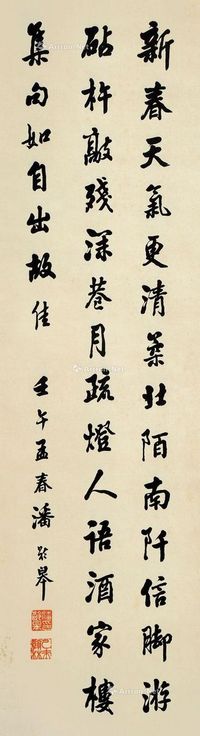 新春天氣更清柔北陌南阡信脚游
砧杵敲殘深巷月疏燈人語酒家樓
集句如自出故佳 壬午孟春潘齡皋